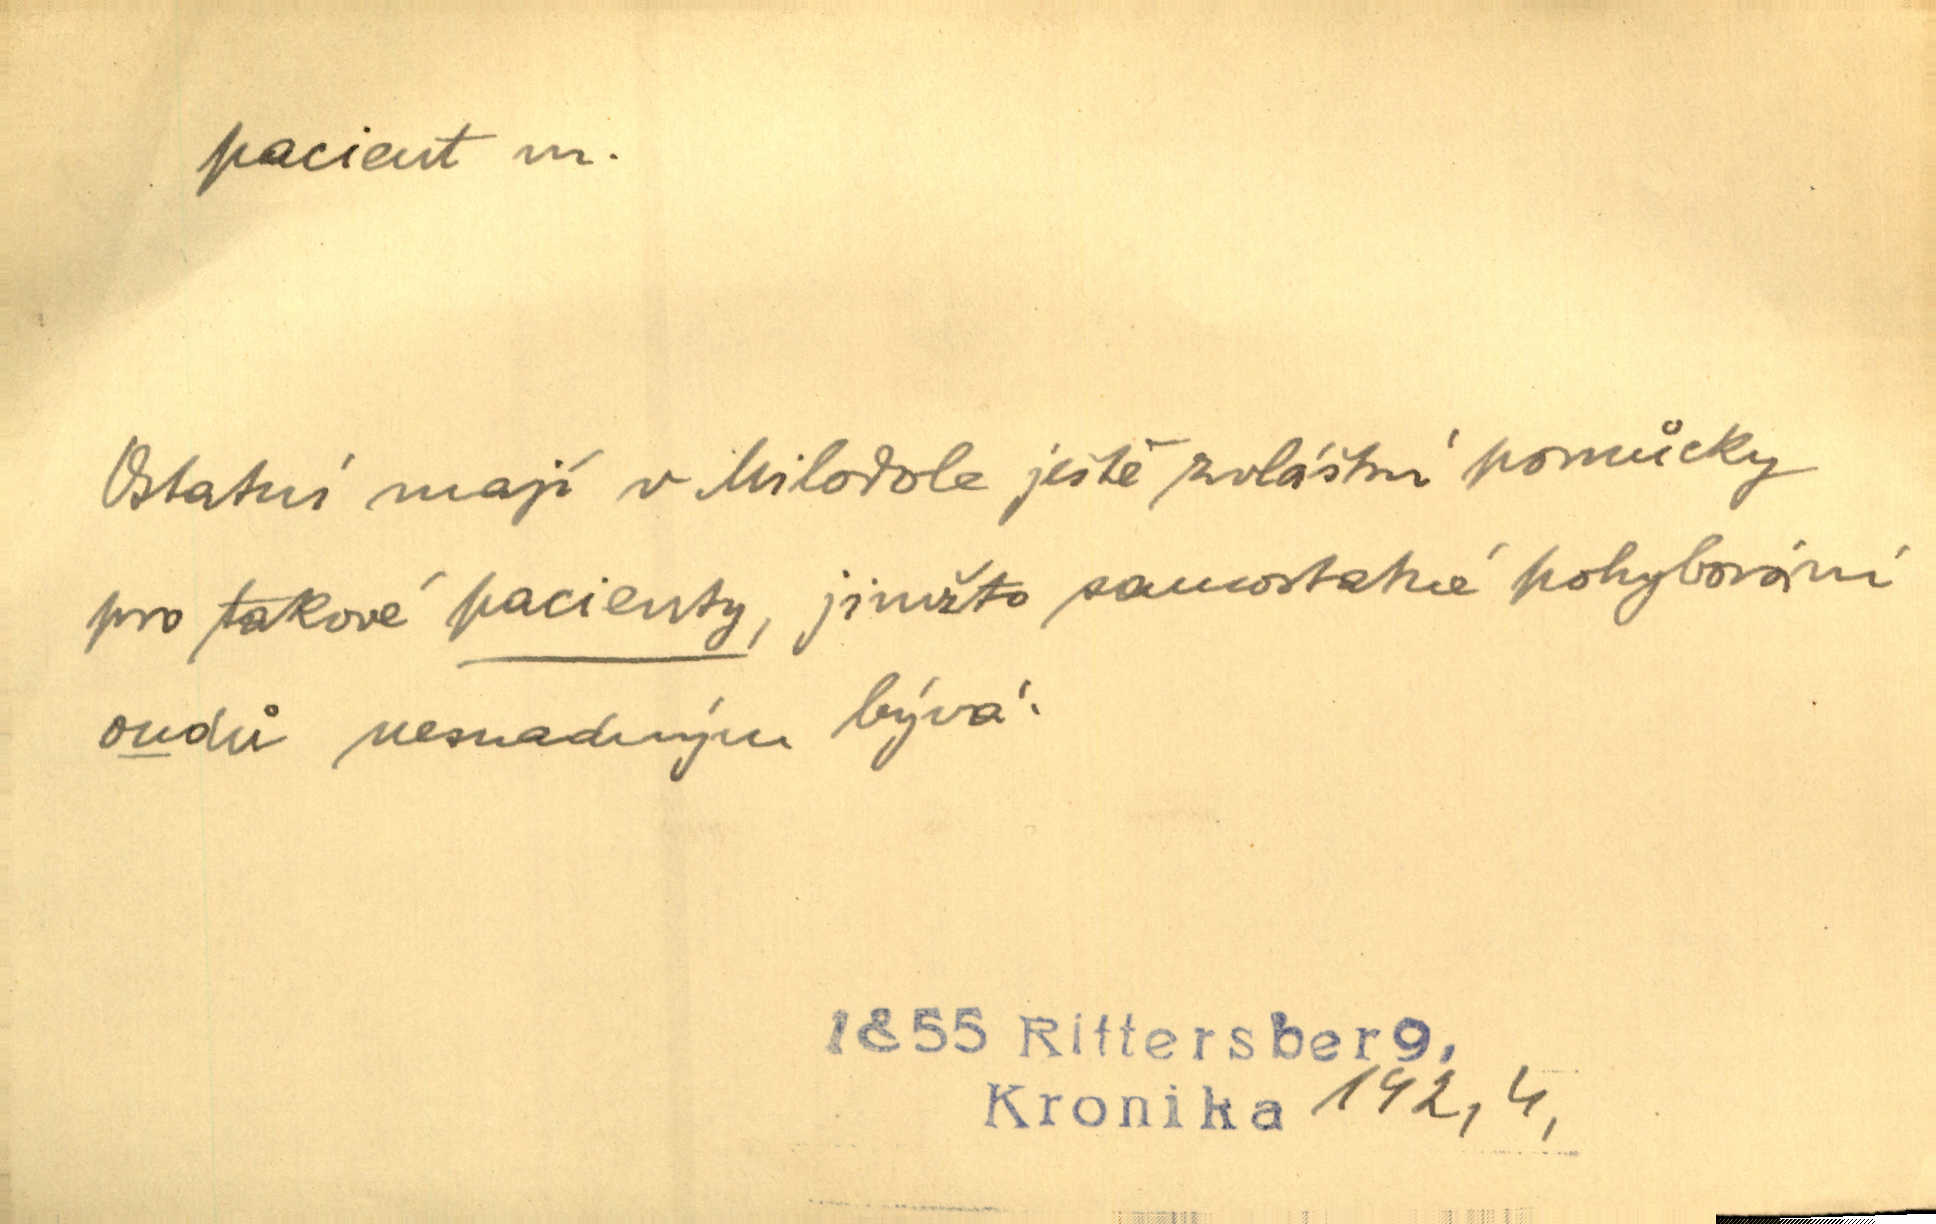 pacient m.
Ostatní mají v Milodole ještě zvláštní pomůcky
pro takové pacienty, jimžto samostatné pohybování
oudů nesnadným bývá.
1855 Rittersberg,
Kronika 192, 4,